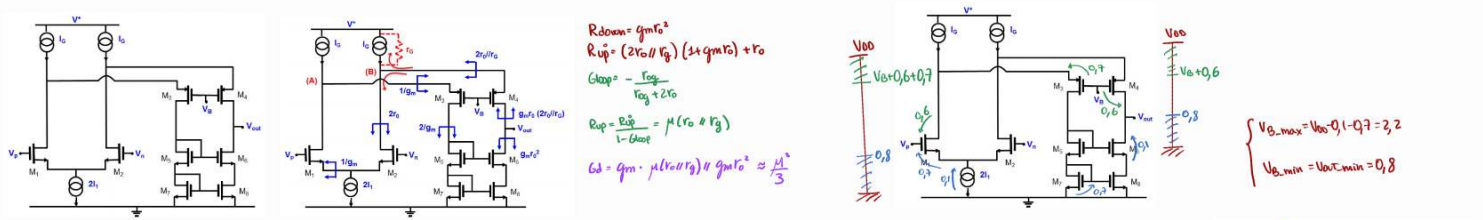 V⁺
I_G
I_G
M₃
M₄
V_B
V_out
V_p
V_n
M₁
M₂
M₅
M₆
2I₁
M₇
M₈
V⁺
I_G
I_G
r_G
2r₀//r_G
(A)
(B)
1/g_m
M₃
M₄
V_B
g_m r₀ (2r₀//r_G)
V_out
2r₀
2/g_m
g_m r₀²
V_p
V_n
M₁
1/g_m
M₂
M₅
M₆
2I₁
M₇
M₈
Rdown = gmro²
Rup° = (2ro // rg) (1+gmro) + ro
Gloop = - rog / rog + 2ro
Rup = Rup° / 1-Gloop = μ (ro // rg)
Gd = gm · μ(ro//rg) // gmro² ≈ μ² / 3
VDD
VB+0,6+0,7
0,8
V⁺
I_G
I_G
0,7
M₃
M₄
V_B
0,6
V_out
0,6
V_p
V_n
M₁
M₂
M₅
M₆
0,1
0,7
0,1
2I₁
M₇
0,7
M₈
VDD
VB+0,6
0,8
VB_max = VDD-0,1-0,7 = 2,2
VB_min = Vout_min = 0,8